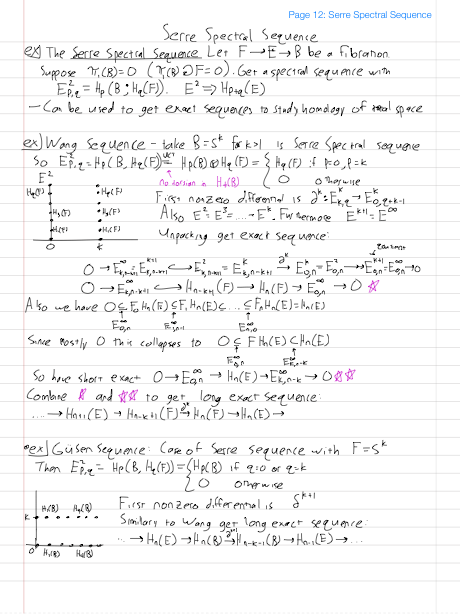 Page 12: Serre Spectral Sequence
Serre Spectral Sequence
ex) The Serre Spectral Sequence Let F → E → B be a fibration.
Suppose π₁(B)=0 (π₁(B) ↻ F=0). Get a spectral sequence with
E²_{p,q} = H_p(B; H_q(F)). E² ⇒ H_{p+q}(E)
- Can be used to get exact sequences to study homology of total space
ex) Wang Sequence - take B=S^k for k>1 is Serre Spectral sequence
So E²_{p,q} = H_p(B, H_q(F)) =^{UCT} H_p(B)⊗H_q(F) = { H_q(F) if p=0, p=k
0 otherwise
no torsion in H_*(B)
E²
H_q(F) H_q(F)
H_1(F) H_1(F)
0 k
First nonzero differential is ∂^k: E^k_{k,q} → E^k_{0,q+k-1}
Also E²=E³=...=E^k. Furthermore E^{k+1}=E^∞
Unpacking get exact sequence:
0 → E^∞_{k,n-k+1} = E^{k+1}_{k,n-k+1} ↪ E²_{k,n-k+1} = E^k_{k,n-k+1} →^{∂^k} E^k_{0,n} = E²_{0,n} → E^{k+1}_{0,n} = E^∞_{0,n} → 0
0 → E^∞_{k,n-k+1} ↪ H_{n-k+1}(F) → H_n(F) → E^∞_{0,n} → 0 ☆
Also we have 0 ⊆ F_0 H_n(E) ⊆ F_1 H_n(E) ⊆ .... ⊆ F_n H_n(E) = H_n(E)
E^∞_{0,n} E^∞_{1,n-1} E^∞_{n,0}
Since mostly 0 this collapses to 0 ⊆ F H_n(E) ⊆ H_n(E)
E^∞_{0,n} E^∞_{k,n-k}
So have short exact 0 → E^∞_{0,n} → H_n(E) → E^∞_{k,n-k} → 0 ☆☆
Combine ☆ and ☆☆ to get long exact sequence:
.... → H_{n+1}(E) → H_{n-k+1}(F) →^{∂^k} H_n(F) → H_n(E) →
ex) Gysen Sequence: Case of Serre Sequence with F=S^k
Then E²_{p,q} = H_p(B, H_q(F)) = { H_p(B) if q=0 or q=k
0 otherwise
k H_1(B)
0 H_1(B)
First nonzero differential is ∂^{k+1}
Similarly to Wang get long exact sequence:
... → H_n(E) → H_n(B) →^{∂^{k+1}} H_{n-k-1}(B) → H_{n-1}(E) → ...